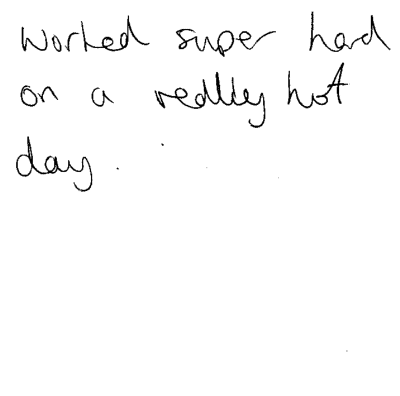 worked super hard
on a really hot
day.